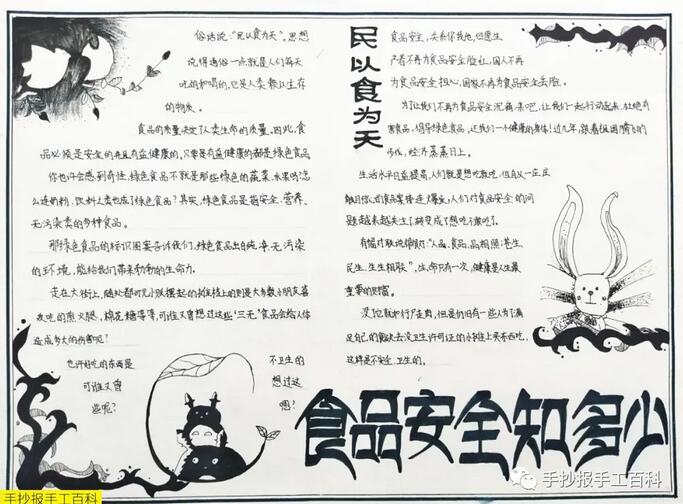 俗话说:"民以食为天"。思想
说得通俗一点就是人们每天
吃的和喝的,它是人类赖以生存
的物质。
食品的质量决定了人类生命的质量。因此,食
品必须是安全的并且有益健康的。只要是有益健康的都是绿色食品。
你也许会感到奇怪,绿色食品不就是那些绿色的蔬菜、水果吗?怎
么连奶粉、饮料人类也成了绿色食品?其实,绿色食品是指安全、营养、
无污染类的多种食品。
那绿色食品的标识图案告诉我们,绿色食品出自纯净、无污染
的环境,能给我们带来勃勃的生命力。
走在大街上,随处都可见小跃摆起的
上的则是大多数小朋友喜
欢吃的熏火腿、棉花糖等等,可谁又曾想过这些"三无"食品会给人体
造成多大的伤害呢?
也许好吃的东西是
可谁又曾
些呢?
不卫生的
想过这
嗯?
民以食为天
食品安全,关系你我他,但愿生
产者不再为食品安全脸红,国人不再
为食品安全担心,国家不再为食品安全丢脸。
为了让我们不再为食品安全沉痛,来吧,让我们一起行动起来,杜绝有
害食品,倡导绿色食品,还我们一个健康的身体!过几年,跟着祖国腾飞的
步伐,经济蒸蒸日上。
生活水平日益提高,人们就是想吃就吃,但自从一庄庄
触目惊心的食品案接连爆发,人们对食品安全的问
题越来越关注了,转变成了想吃不敢吃了。
有幅对联说得好:"人品、食品、品相照;苍生、
民生、生生相联",生命只有一次,健康是人生最
重要的财富。
没它就如行尸走肉,但是仍旧有一些人为了满
足自己的食欲去没卫生许可证的小摊上买东西吃,
这样是不安全、卫生的。
食品安全知多少
手抄报手工百科
手抄报手工百科